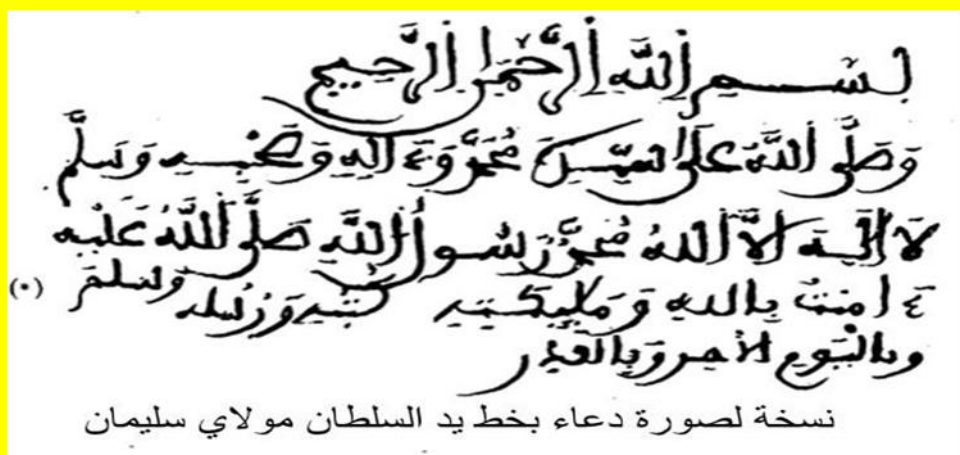 بسم الله الرحمن الرحيم
وصلى الله على سيدنا محمد وءاله وصحبه وسلم
لا إله إلا الله محمد رسول الله صلى الله عليه
وسلم
ءامنت بالله ومليكته كتبه ورسله (٠)
وباليوم الأخر وبالقدر
نسخة لصورة دعاء بخط يد السلطان مولاي سليمان